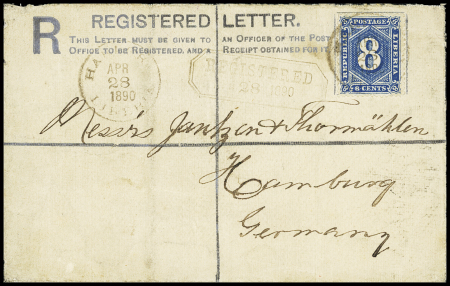 R REGISTERED LETTER.
THIS LETTER MUST BE GIVEN TO AN OFFICER OF THE POST
OFFICE TO BE REGISTERED, AND A RECEIPT OBTAINED FOR IT.
APR
28
1890
REGISTERED
28 1890
REPUBLIC
POSTAGE
LIBERIA
8
8 CENTS
Messrs Jantzen & Thormählen
Hamburg
Germany